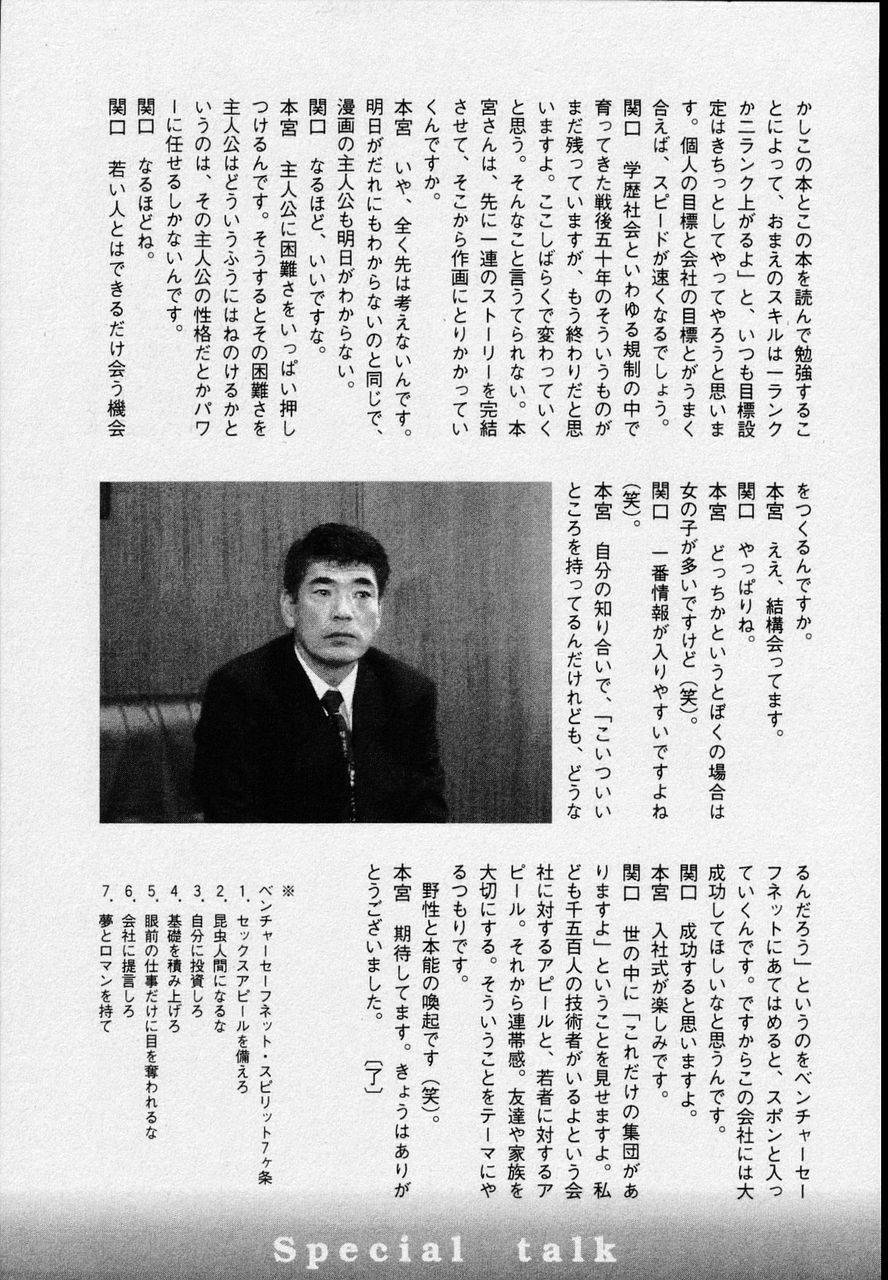 かしこの本とこの本を読んで勉強するこ
とによって、おまえのスキルは一ランク
か二ランク上がるよ」と、いつも目標設
定はきちっとしてやってやろうと思いま
す。個人の目標と会社の目標とがうまく
合えば、スピードが速くなるでしょう。
関口　学歴社会といわゆる規制の中で
育ってきた戦後五十年のそういうものが
まだ残っていますが、もう終わりだと思
いますよ。ここしばらくで変わっていく
と思う。そんなこと言うてられない。本
宮さんは、先に一連のストーリーを完結
させて、そこから作画にとりかかってい
くんですか。
本宮　いや、全く先は考えないんです。
明日がだれにもわからないのと同じで、
漫画の主人公も明日がわからない。
関口　なるほど、いいですな。
本宮　主人公に困難さをいっぱい押し
つけるんです。そうするとその困難さを
主人公はどういうふうにはねのけるかと
いうのは、その主人公の性格だとかパワ
ーに任せるしかないんです。
関口　なるほどね。
関口　若い人とはできるだけ会う機会
をつくるんですか。
本宮　ええ、結構会ってます。
関口　やっぱりね。
本宮　どっちかというとぼくの場合は
女の子が多いですけど（笑）。
関口　一番情報が入りやすいですよね
（笑）。
本宮　自分の知り合いで、「こいついい
ところを持ってるんだけれども、どうな
るんだろう」というのをベンチャーセー
フネットにあてはめると、スポンと入っ
ていくんです。ですからこの会社には大
成功してほしいなと思うんです。
関口　成功すると思いますよ。
本宮　入社式が楽しみです。
関口　世の中に「これだけの集団があ
りますよ」ということを見せますよ。私
ども千五百人の技術者がいるよという会
社に対するアピールと、若者に対するア
ピール。それから連帯感。友達や家族を
大切にする。そういうことをテーマにや
るつもりです。
野性と本能の喚起です（笑）。
本宮　期待してます。きょうはありが
とうございました。　〔了〕
※
ベンチャーセーフネット・スピリット7ヶ条
1．セックスアピールを備えろ
2．昆虫人間になるな
3．自分に投資しろ
4．基礎を積み上げろ
5．眼前の仕事だけに目を奪われるな
6．会社に提言しろ
7．夢とロマンを持て
Special talk